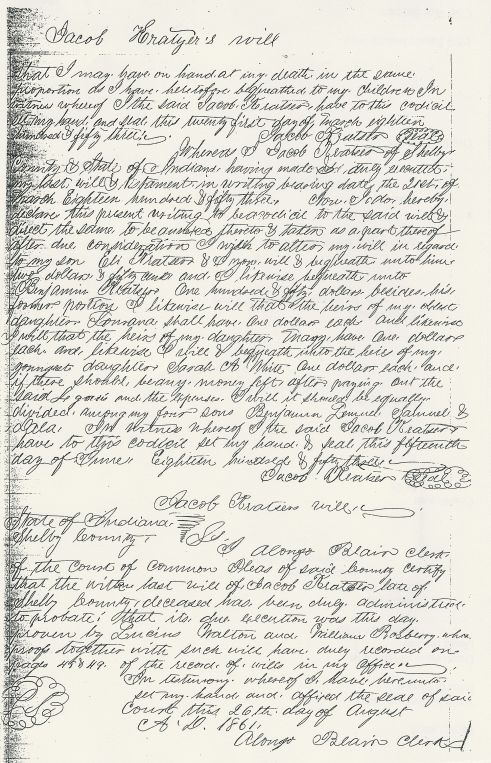 Jacob Kratzer's will
that I may have on hand at my death in the same
proportion as I have heretofore bequeathed to my children In
witness whereof I the said Jacob Kratser have to this codicil
set my hand and seal this twenty first day of March eighteen
hundred & fifty three Jacob Kratser Seal
Whereas I Jacob Kratser of Shelby
County & State of Indiana having made & duly executed
my last will & testament in writing bearing date the 21st of
March Eighteen hundred & fifty three Now I do hereby
declare this present writing to be a codicil to the said will &
direct the same to be annexed thereto & taken as a part thereof
after due consideration I wish to alter my will in regard
to my son Eli Kratser & I now will & beqheath unto him
five dollars & fifty and I likewise beqheath unto
Benjamin Kratser One hundred & fifty dollars besides his
former portion I likewise will that the heirs of my oldest
daughter shall have One dollar each and likewise
I will that the heirs of my daughter Mary have One dollar
each and likewise I will & beqheath unto the heirs of my
youngest daughter Sarah A White One dollar each and
if there should be any money left after paying out the
said and the expenses I will it should be equally
divided among my four sons Benjamin Lemuel Samuel &
In witness whereof I the said Jacob Kratser
have to this codicil set my hand & seal this fifteenth
day of June Eighteen hundred & fifty three
Jacob Kratser Seal
Jacob Kratsers will
State of Indiana
Shelby County
I Alonzo Blair clerk
of the Court of Common Pleas of said County certify
that the within last will of Jacob Kratser late of
Shelby County deceased has been duly admitted
to probate that its due execution was this day
proven by Lucius Walton and William Rosberry whose
proofs together with such will have duly recorded on
pages 48 & 49 of the record of wills in my office
In testimony whereof I have hereunto
set my hand and affixed the seal of said
Court this 26th day of August
A.D. 1861.
Alonzo Blair clerk